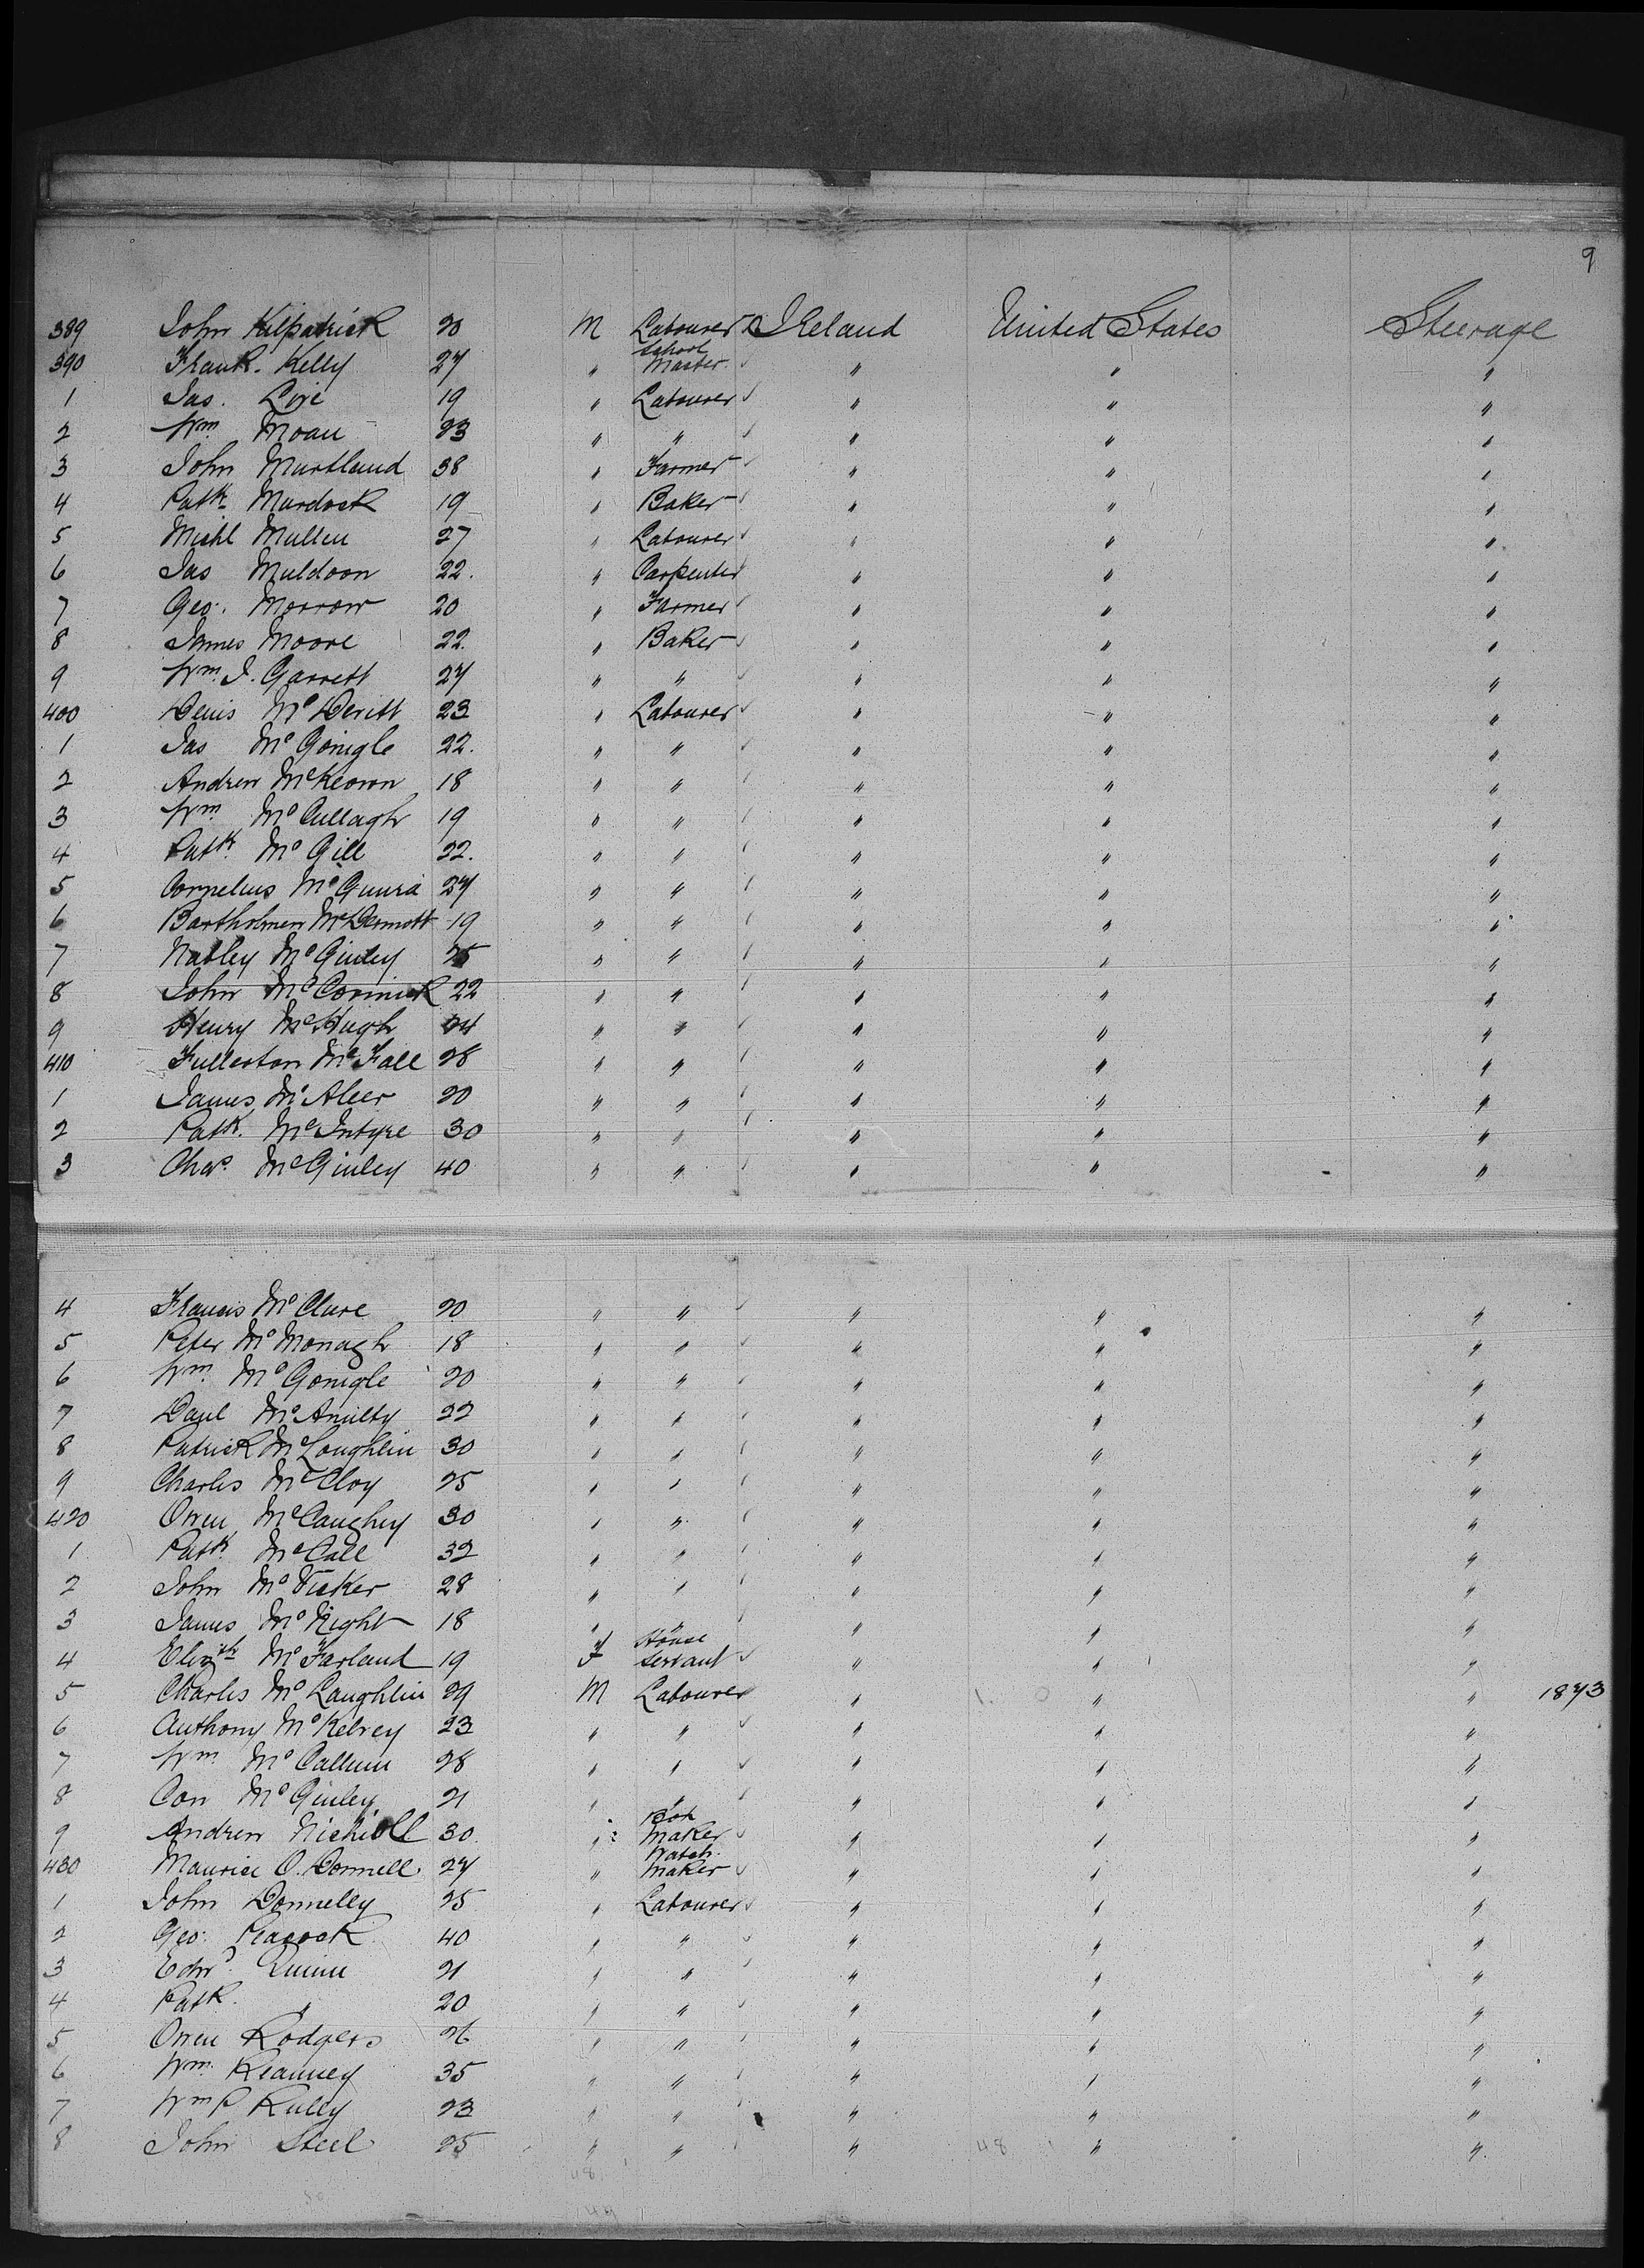 9
389 John Kilpatrick 20 M Labourer Ireland United States Steerage
390 Frank. Kelly 27 " School Master " " "
1 Jas. 19 " Labourer " " "
2 Wm Moan 23 " " " " "
3 John Murtland 38 " Farmer " " "
4 Patk Murdock 19 " Baker " " "
5 Michl Mullen 27 " Labourer " " "
6 Jas Muldoon 22. " Carpenter " " "
7 Geo. Morrow 20 " Farmer " " "
8 James Moore 22. " Baker " " "
9 Wm. J. Garrett 27 " " " " "
400 Denis McDevitt 23 " Labourer " " "
1 Jas McGonigle 22. " " " " "
2 Andrew McKeown 18 " " " " "
3 Wm McCullagh 19 " " " " "
4 Patk. McGill 22. " " " " "
5 Cornelius 27 " " " " "
6 Bartholmew McDermott 19 " " " " "
7 McGinley 25 " " " " "
8 John McCormick 22 " " " " "
9 Henry McHugh 24 " " " " "
410 Fullerton McFall 28 " " " " "
1 James McAleer 20 " " " " "
2 Patk. McIntyre 30 " " " " "
3 Chas. McGinley 40 " " " " "
4 Francis McClure 20 " " " " "
5 Peter McMonagh 18 " " " " "
6 Wm. McGonigle 20 " " " " "
7 Danl McAnulty 22 " " " " "
8 Patrick McLoughlin 30 " " " " "
9 Charles McCloy 25 " " " " "
420 Owen McCaughey 30 " " " " "
1 Patk. McCall 32 " " " " "
2 John McVicker 28 " " " " "
3 James McNight 18 " " " " "
4 Elizth McFarland 19 F House Servant " " "
5 Charles McLaughlin 29 M Labourer " " " 1873
6 Anthony McKelvey 23 " " " " "
7 Wm. McCallum 28 " " " " "
8 Con McGinley 21 " " " " "
9 Andrew Nicholl 30 " Maker " " "
430 Maurice O. Donnell 27 " Watch Maker " " "
1 John Donnelly 25 " Labourer " " "
2 Geo. Peacock 40 " " " " "
3 Edwd. Quinn 21 " " " " "
4 Patk. " 20 " " " " "
5 Owen Rodgers 26 " " " " "
6 Wm. 35 " " " " "
7 Wm 23 " " " " "
8 John Steel 25 " " " " "